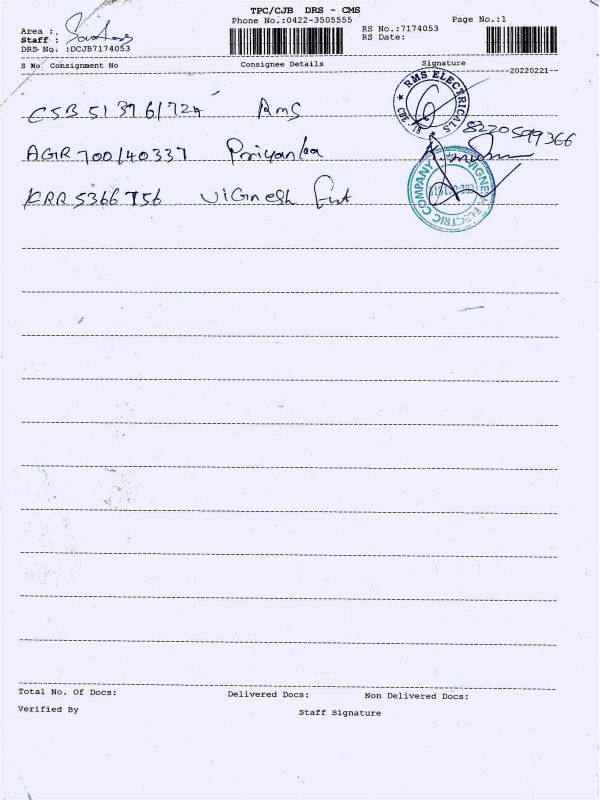 TPC/CJB DRS - CMS
Phone No.:0422-3505555
Page No.:1
Area :
Staff :
DRS No. :DCJB7174053
RS No.:7174053
RS Date:
S No Consignment No Consignee Details Signature
20220221
CSB 51376/724 RMS
RMS ELECTRICALS
8220599366
AGR 700140337 Priyanka
KRR 5366756 Vignesh
VIGNESH ELECTRIC COMPANY
Total No. Of Docs: Delivered Docs: Non Delivered Docs:
Verified By Staff Signature